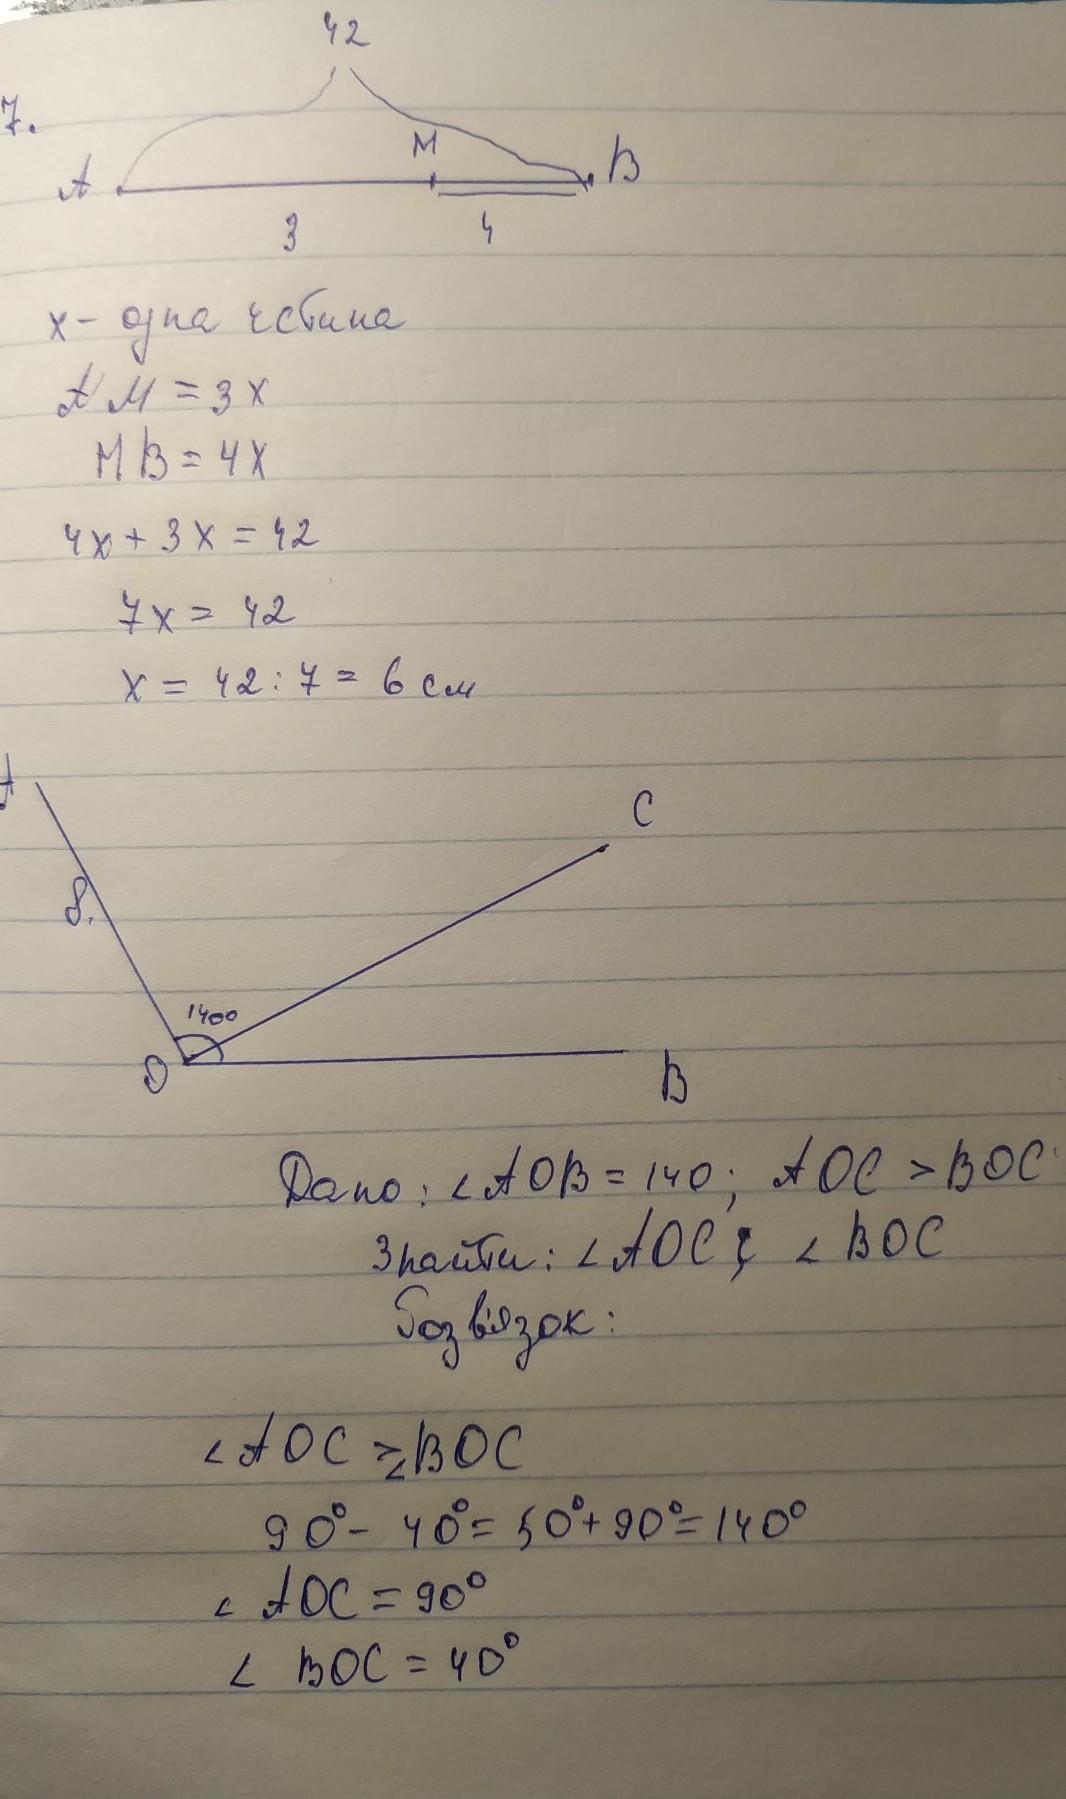 42
7.
A M B
3 4
x - одна чстина
AM = 3x
MB = 4x
4x + 3x = 42
7x = 42
x = 42 : 7 = 6 см
A
C
8.
140°
O
B
Дано: ∠AOB = 140; AOC > BOC
Знайти: ∠AOC; ∠BOC
Розв'язок:
∠AOC > ∠BOC
90° - 40° = 50° + 90° = 140°
∠AOC = 90°
∠BOC = 40°